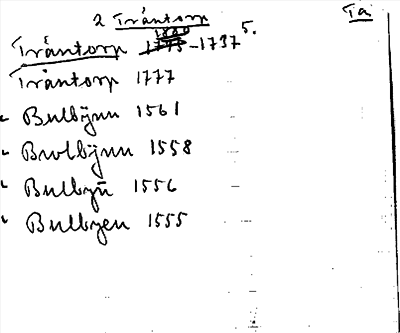 2 Tråntorp
Ta
Tråntorp 1800 1775-1737 5.
Tråntorp 1777
" Bulbÿnn 1561
" Brolbÿnn 1558
" Bulbyn̄ 1556
" Bulbyen 1555